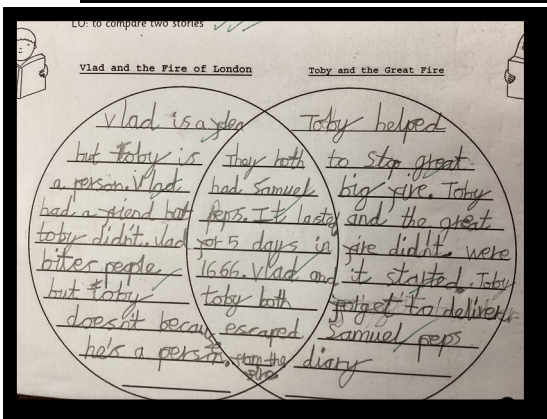 LO: to compare two stories
Vlad and the Fire of London
Toby and the Great Fire
Vlad is a flea
but Toby is
a person. Vlad
had a friend but
toby didn't. Vlad
bites people
but toby
doesn't becaus
he's a person.
They both
had Samuel
peps. It lasted
for 5 days in
1666. Vlad and
toby both
escaped
from the
fire
Toby helped
to stop great
big fire. Toby
and the great
fire didn't. were
it started. Toby
forget to deliver
Samuel peps
diary